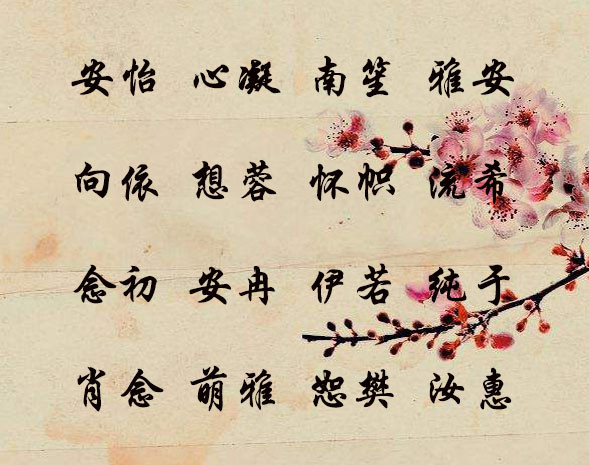 安怡 心凝 南笙 雅安
向依 想蓉 怀帜 流希
念初 安冉 伊若 纯于
肖念 萌雅 恕樊 汝惠